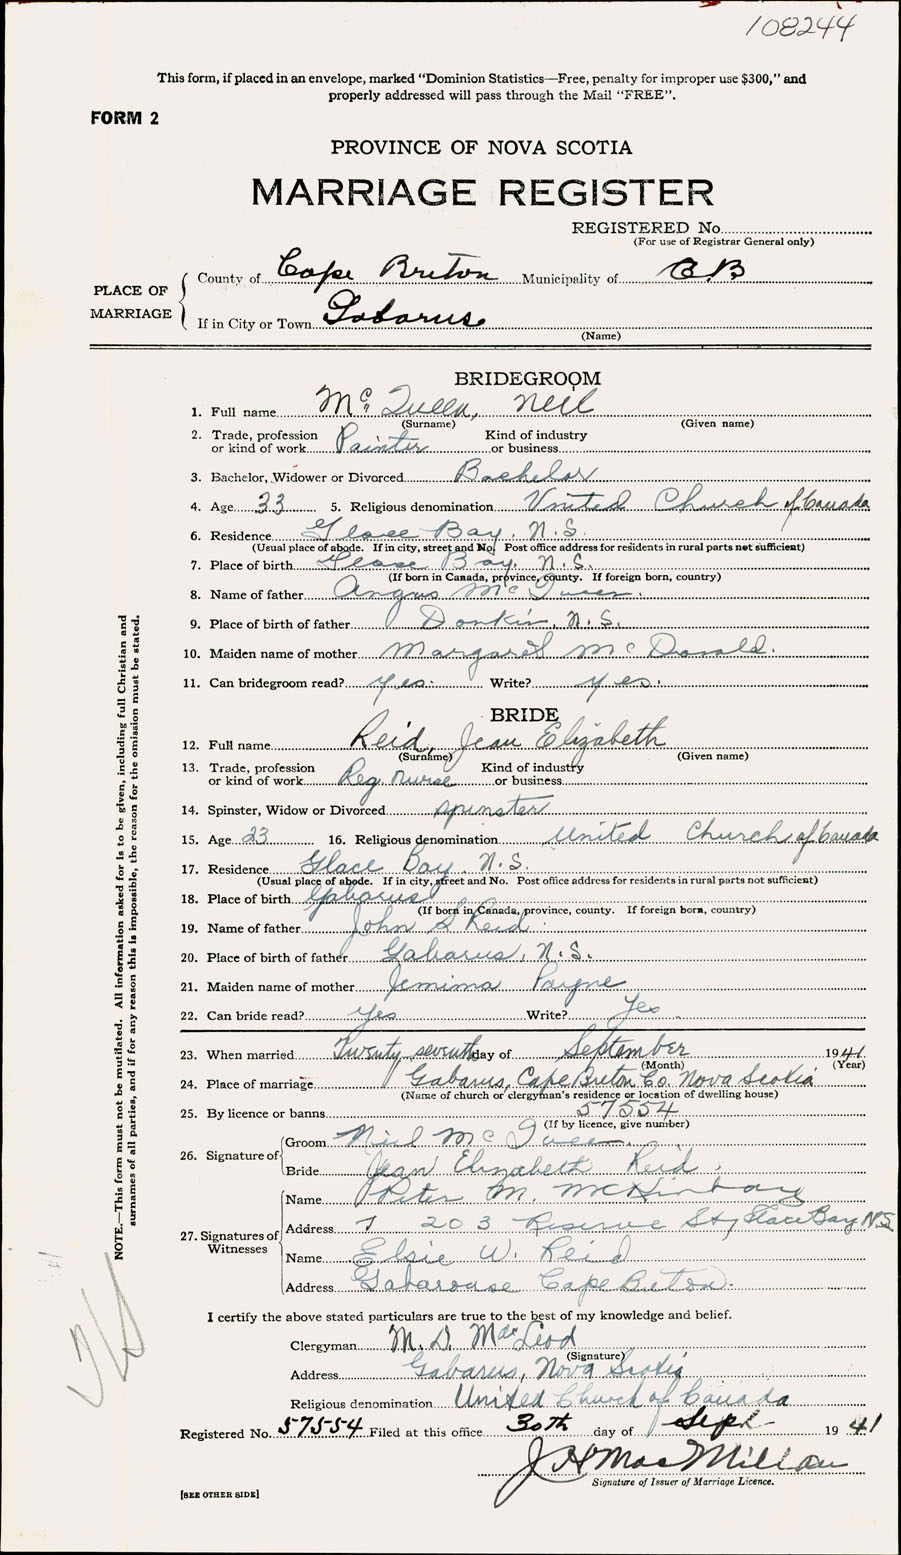 108244
This form, if placed in an envelope, marked “Dominion Statistics—Free, penalty for improper use $300,” and
properly addressed will pass through the Mail “FREE”.
FORM 2
PROVINCE OF NOVA SCOTIA
MARRIAGE REGISTER
REGISTERED No.
(For use of Registrar General only)
PLACE OF MARRIAGE
County of Cape Breton Municipality of C B
If in City or Town Gabarus
(Name)
BRIDEGROOM
1. Full name McQueen, Neil
(Surname) (Given name)
2. Trade, profession or kind of work Painter Kind of industry or business
3. Bachelor, Widower or Divorced Bachelor
4. Age 33 5. Religious denomination United Church of Canada
6. Residence Glace Bay, N.S.
(Usual place of abode. If in city, street and No. Post office address for residents in rural parts not sufficient)
7. Place of birth Glace Bay, N.S.
(If born in Canada, province, county. If foreign born, country)
8. Name of father Angus McQueen.
9. Place of birth of father Donkin, N.S.
10. Maiden name of mother Margaret McDonald.
11. Can bridegroom read? yes. Write? yes.
BRIDE
12. Full name Reid, Jean Elizabeth
(Surname) (Given name)
13. Trade, profession or kind of work Reg. Nurse Kind of industry or business
14. Spinster, Widow or Divorced spinster
15. Age 23 16. Religious denomination United Church of Canada
17. Residence Glace Bay, N.S.
(Usual place of abode. If in city, street and No. Post office address for residents in rural parts not sufficient)
18. Place of birth Gabarus
(If born in Canada, province, county. If foreign born, country)
19. Name of father John S Reid
20. Place of birth of father Gabarus, N.S.
21. Maiden name of mother Jemima Payne
22. Can bride read? Yes Write? Yes
23. When married Twenty seventh day of September 1941
(Month) (Year)
24. Place of marriage Gabarus, Cape Breton Co. Nova Scotia
(Name of church or clergyman's residence or location of dwelling house)
25. By licence or banns 57554
(If by licence, give number)
26. Signature of
Groom Neil McQueen.
Bride Jean Elizabeth Reid.
27. Signatures of Witnesses
Name Peter M. McKinlay
Address 203 Reserve St, Glace Bay N.S.
Name Elsie W. Reid
Address Gabarouse Cape Breton.
I certify the above stated particulars are true to the best of my knowledge and belief.
Clergyman M. D. MacLeod
(Signature)
Address Gabarus, Nova Scotia
Religious denomination United Church of Canada
Registered No. 57554 Filed at this office 30th day of Sept 1941
J H MacMillan
Signature of Issuer of Marriage Licence.
[SEE OTHER SIDE]
NOTE.—This form must not be mutilated. All information asked for is to be given, including full Christian and
surnames of all parties, and if for any reason this is impossible, the reason for the omission must be stated.